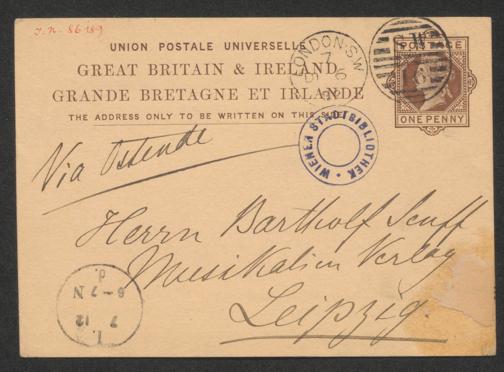 J.N. 86189
UNION POSTALE UNIVERSELLE
GREAT BRITAIN & IRELAND
GRANDE BRETAGNE ET IRLANDE
THE ADDRESS ONLY TO BE WRITTEN ON THIS SIDE
LONDON·S.W
7
POSTAGE
ONE PENNY
S.W
WIENER STADTBIBLIOTHEK
Via Ostende
Herrn Bartholf Senff
Musikalien Verlag
Leipzig.
L.
7 12
6–7 N
d.